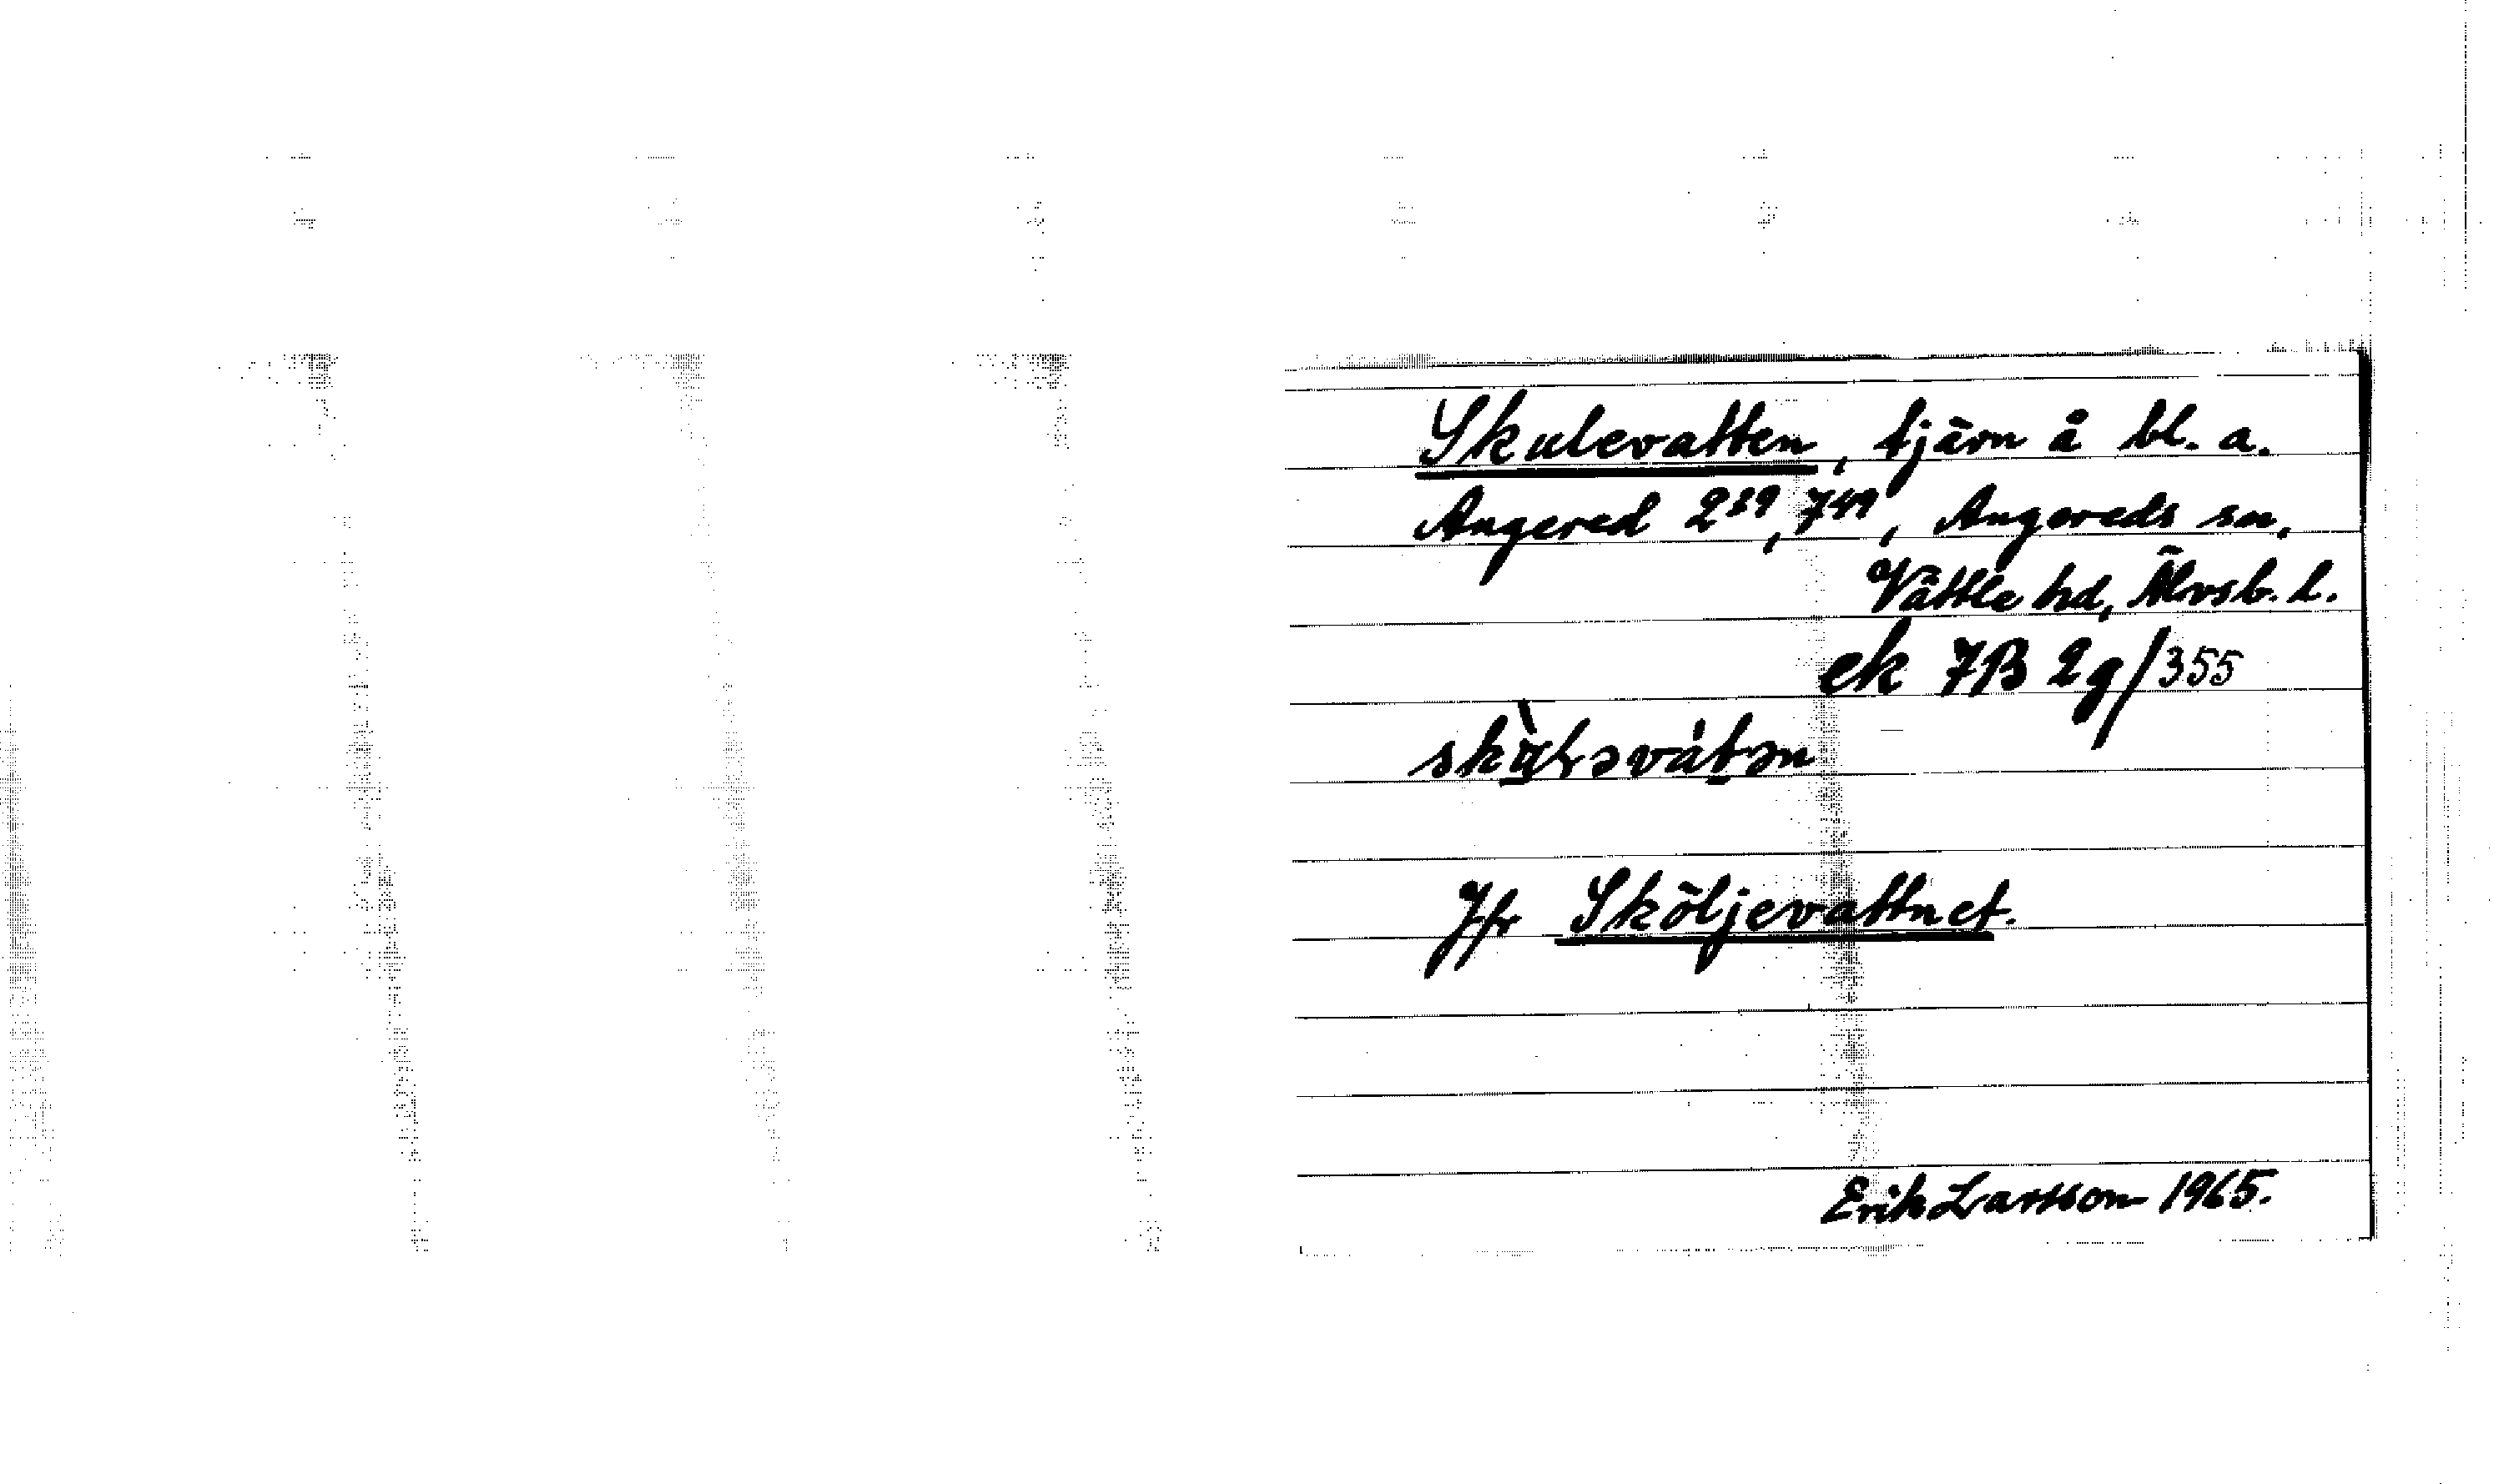 Skulevatten, tjärn å bl. a.
Angered 2²³⁹, 7⁴⁹, Angereds sn,
Vättle hd, Älvsb. l.
ek 7B 2g/355
Jfr Sköljevattnet.
Erik Larsson 1965.